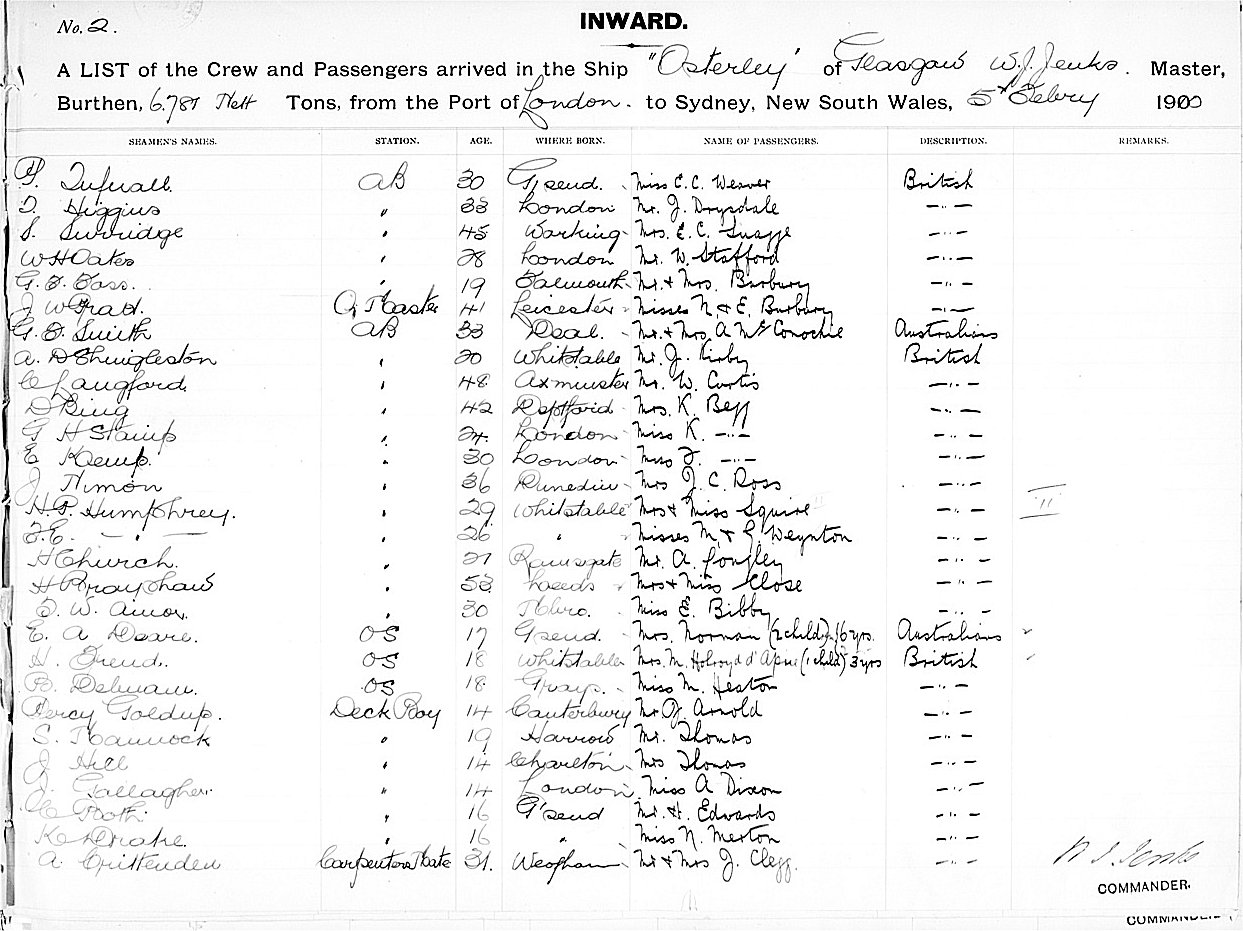 No. 2.
INWARD.
A LIST of the Crew and Passengers arrived in the Ship "Osterley" of Glasgow W. J. Jenks. Master,
Burthen, 6.781 Nett Tons, from the Port of London. to Sydney, New South Wales, 5th Febry 1900
SEAMEN'S NAMES. STATION. AGE. WHERE BORN. NAME OF PASSENGERS. DESCRIPTION. REMARKS.
Tufnall. AB 30 G'send. Miss C. C. Weaver British
Higgins " 33 London Mr. J. Drysdale —"—
S. Surridge " 45 Working Mrs. E. C. Snagge —"—
W H Oakes " 28 London Mr. W. Stafford —"—
19 Falmouth Mr. & Mrs. Burbury —"—
J W Q. Master 41 Leicester Misses N. & E. Burbury —"—
Smith AB 33 Deal. Mr. & Mrs A McConochie Australians
A. D Shingleston " 20 Whitstable Mr. J. Kirby British
C Langford " 48 Axminster Mr. W. Curtis —"—
D Bing " 42 Deptford Mrs. K. Begg —"—
G H Stamp " 24. London Miss K. —"— —"—
E Kemp. " 30 London Miss —"— —"—
J Nimon " 36 Dunedin Mrs J. C. Ross —"—
H. P. Humphrey. " 29 Whitstable Mrs & Miss Squire —"— "
F. E. — " — " 26 " Misses M & E. Weynton —"—
H Church. " 21 Ramsgate Mr. A. Longley —"—
H Brayshaw " 53 Leeds Mrs & Miss Close —"—
W. Amos. " 30 Miss E. Bibby —"—
E. A Deare. OS 17 G'send. Mrs. Norman (2 child) 6 yrs. Australians
H. Freud. OS 18 Whitstable Mrs. M. Holroyd d'Apice (1 child) 3 yrs British
B. Delmam. OS 18 Grays. Miss M. Heston —"—
Percy Goldup. Deck Boy 14 Canterbury Mr Arnold —"—
S. Hannock " 19 Harrow Mr. Thomas —"—
J Hill " 14 Charlton Mrs Thomas —"—
J. Gallagher. " 14 London Miss A Dixon —"—
C Booth. " 16 G'send Mr. H. Edwards —"—
K Drake. " 16 " Miss N. Merton —"—
A Crittenden Carpenters Mate 31. Meopham Mr & Mrs J. Clegg. —"— W J Jenks
COMMANDER.
COMMANDER